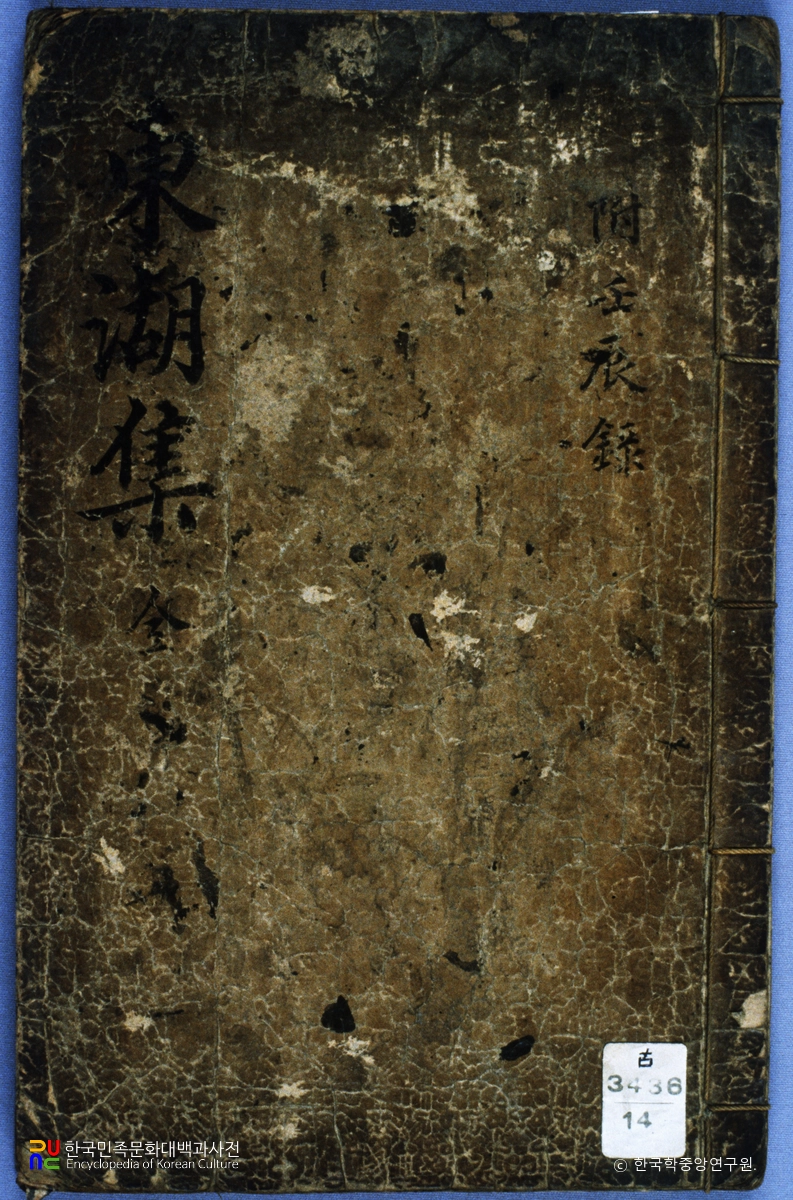 附壬辰錄
東湖集 全
古
3436
14
한국민족문화대백과사전
Encyclopedia of Korean Culture
© 한국학중앙연구원